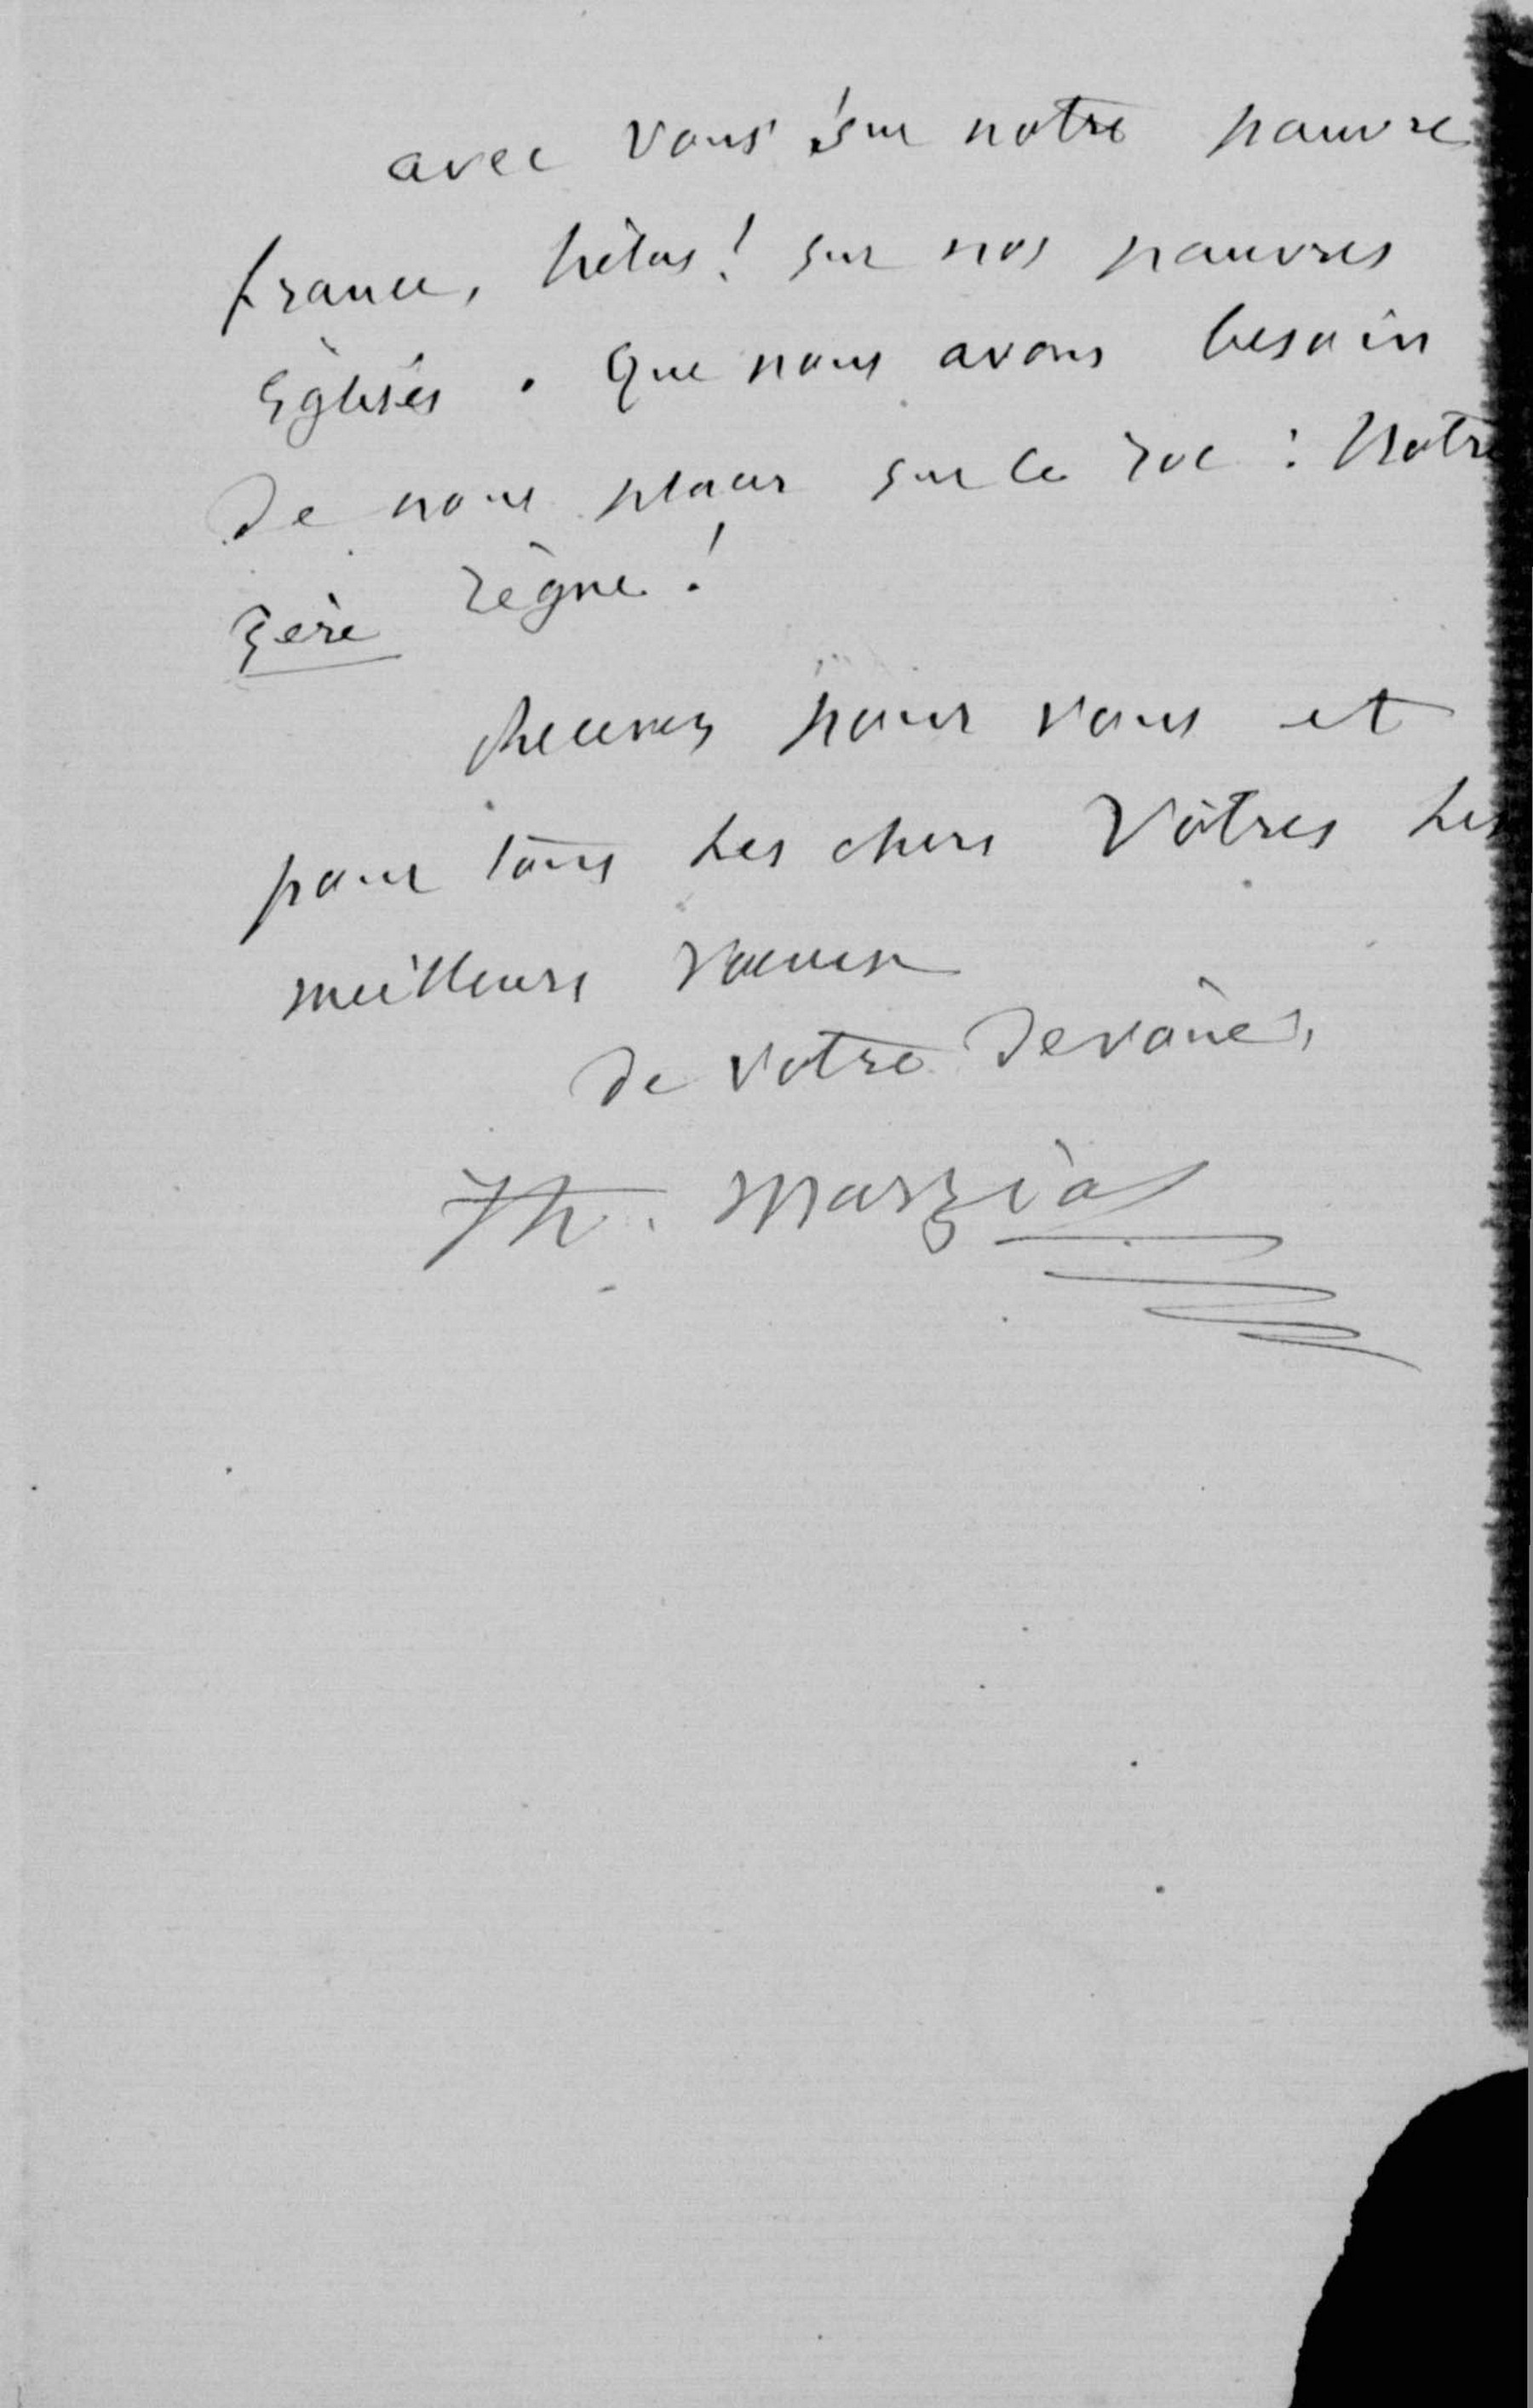 avec vous sur notre pauvre
france, hélas! sur nos pauvres
Églises. Que nous avons besoin
de nous placer sur le roc : Notre
Père règne!
Recevez pour vous et
pour tous les chers Vôtres les
meilleurs vœux
de votre dévoué,
Th. Marzials